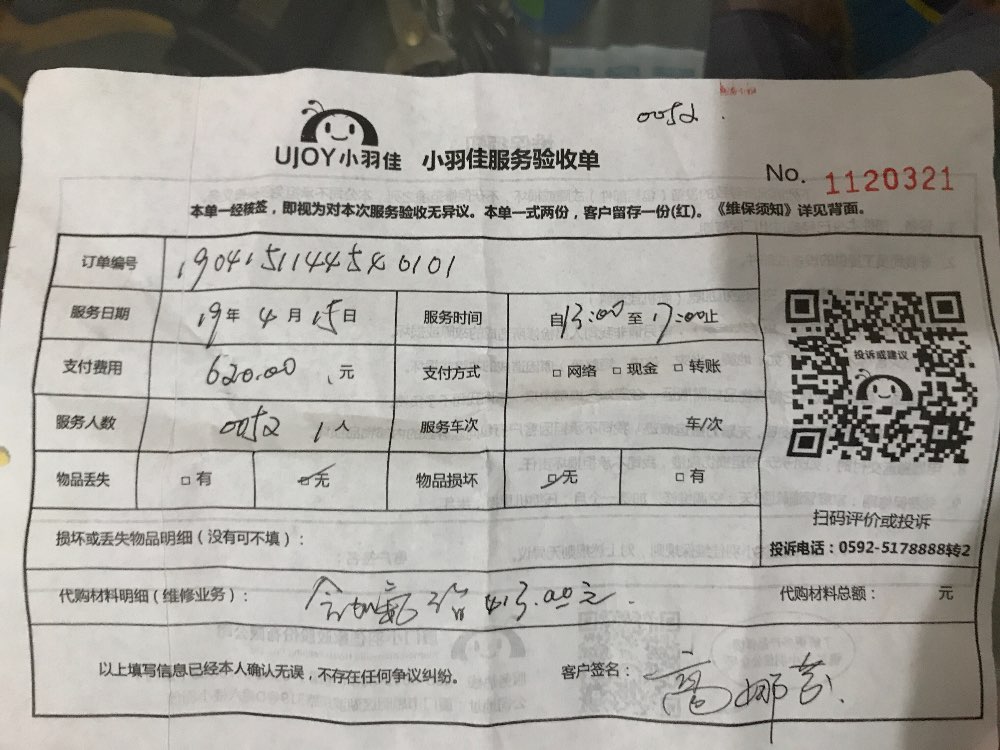 0052
UJOY小羽佳 小羽佳服务验收单
No. 1120321
本单一经核签，即视为对本次服务验收无异议。本单一式两份，客户留存一份(红)。《维保须知》详见背面。
订单编号 190415114454 0101
服务日期 19年 4月 15日 服务时间 自13:00至17:00止
支付费用 620.00 元 支付方式 □ 网络 □ 现金 □ 转账
服务人数 0052 1人 服务车次 车/次
物品丢失 □ 有 □ 无 物品损坏 □ 无 □ 有
投诉或建议
扫码评价或投诉
投诉电话：0592-5178888转2
损坏或丢失物品明细（没有可不填）：
代购材料明细（维修业务）： 413.00元 代购材料总额： 元
以上填写信息已经本人确认无误，不存在任何争议纠纷。 客户签名：